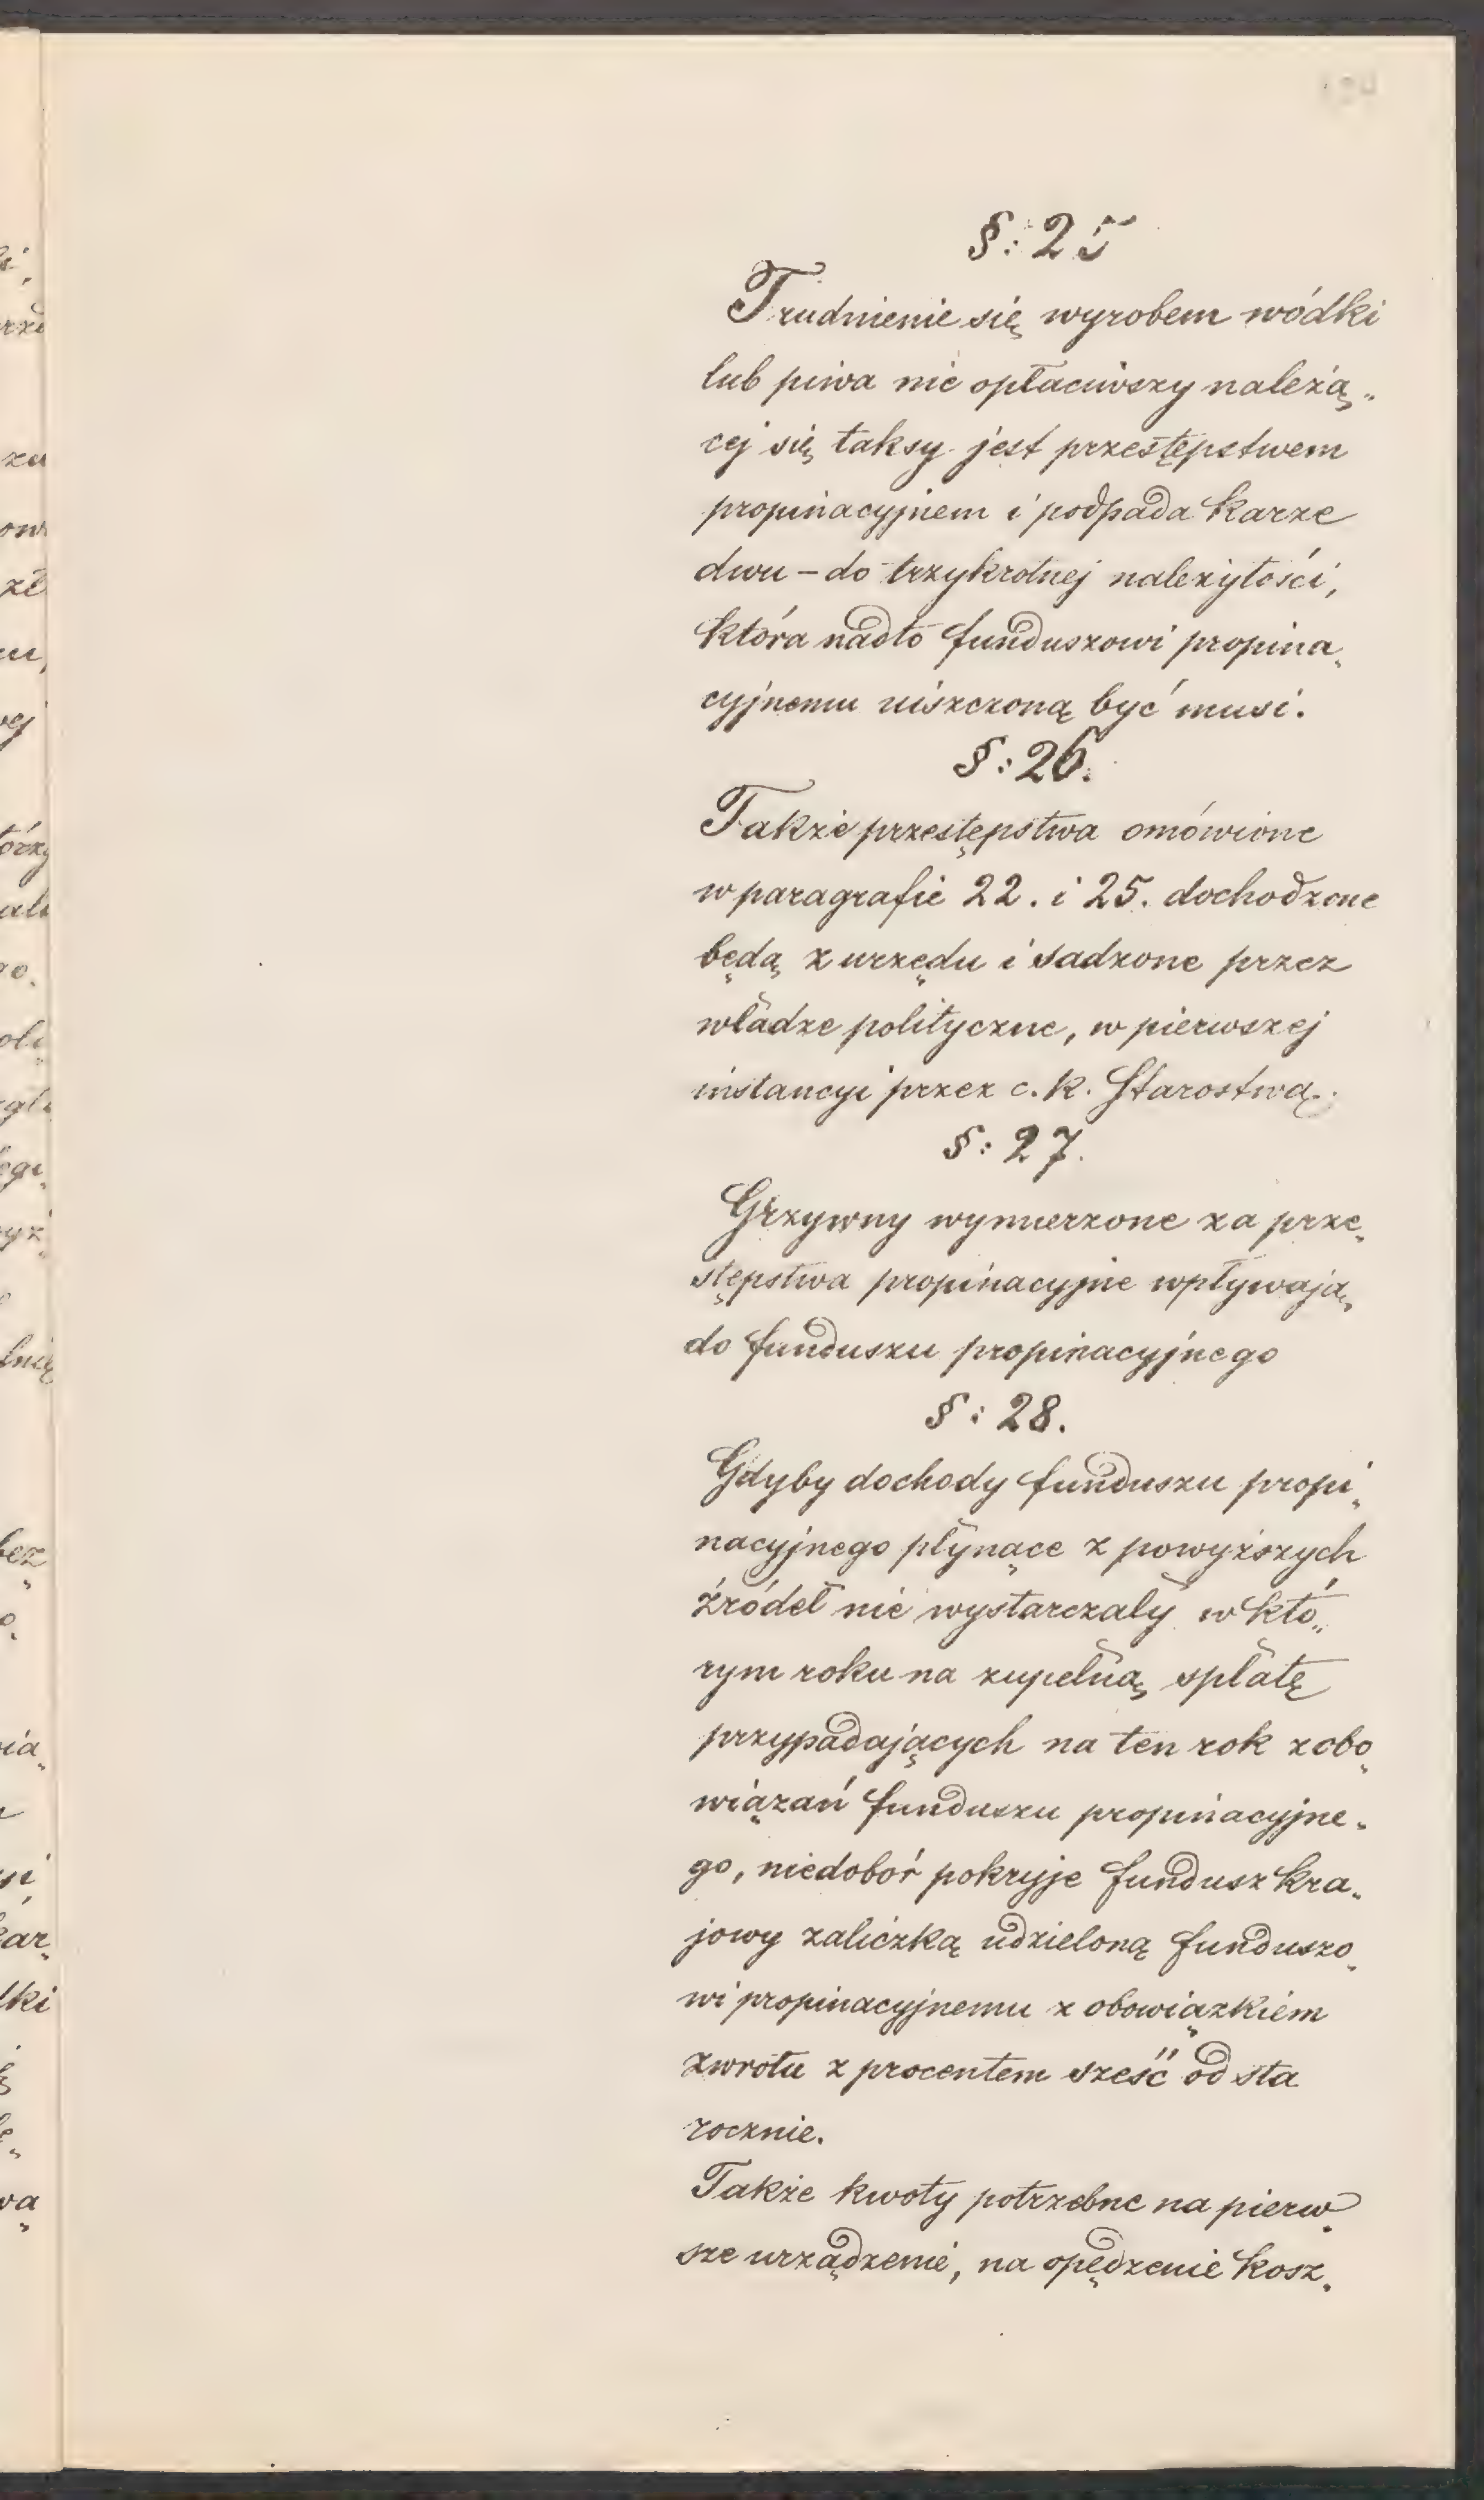 §: 25
Trudnienie się wyrobem wódki
lub piwa nie opłaciwszy należą„
cej się taksy jest przestępstwem
propinacyjnem i podpada karze
dwu – do trzykrotnej należytości,
która nadto funduszowi propina„
cyjnemu uiszczoną być musi.
§: 26.
Także przestępstwa omówione
w paragrafie 22. i 25. dochodzone
będą z urzędu i sadzone przez
władze polityczne, w pierwszej
instancyi przez c. k. Starostwa.
§: 27.
Grzywny wymierzone za prze„
stępstwa propinacyjne wpływają
do funduszu propinacyjnego
§: 28.
Gdyby dochody funduszu propi„
nacyjnego płynące z powyższych
źródeł nie wystarczały w któ„
rym roku na zupełną spłatę
przypadających na ten rok zobo„
wiązań funduszu propinacyjne„
go, niedobór pokryje fundusz kra„
jowy zaliczką udzieloną funduszo„
wi propinacyjnemu z obowiązkiem
zwrotu z procentem sześć od sta
rocznie.
Także kwoty potrzebne na pierw„
sze urządzenie, na opędzenie kosz„